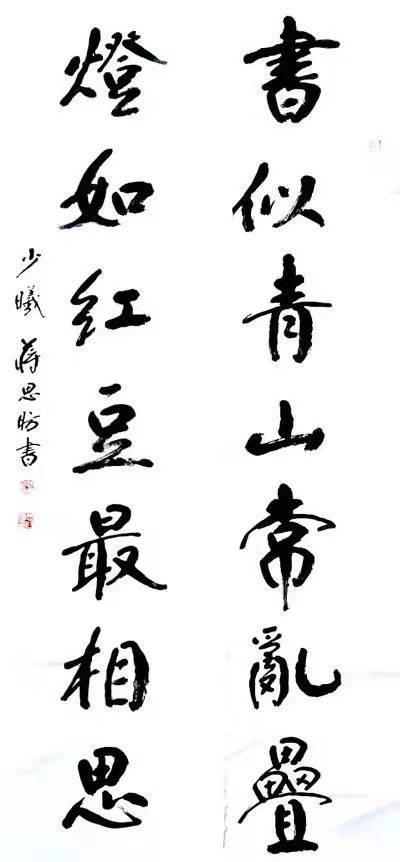 書似青山常亂疊
燈如红豆最相思
少曦 蔣思昉書